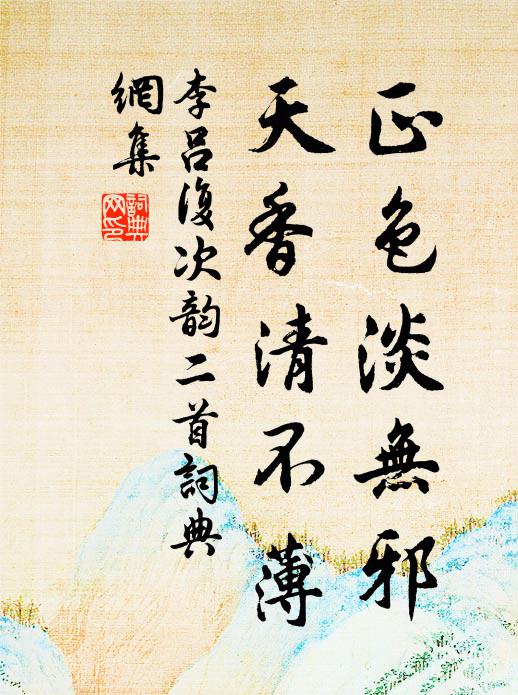 正色淡無邪
天香清不薄
李呂復次韵二首詞典
網集
詞典
网印